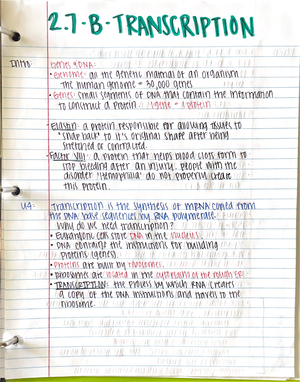 2.7-B-TRANSCRIPTION
Intro:
Genes & DNA:
• Genome: all the genetic material of an organism
the human genome = 30,000 genes
• Genes: small segments of DNA that contain the information
to construct a protein. 1 gene = 1 protein
Elastin: a protein responsible for allowing tissues to
"snap back" to it's original shape after being
stretched or contracted.
Factor VIII: a protein that helps blood clots form to
stop bleeding after an injury. people with the
disorder "Hemophilia" do not properly create
this protein.
U4:
Transcription is the synthesis of mRNA copied from
the DNA base sequences by RNA polymerase.
Why do we need transcription?
• Eukaryotic cells store DNA in the nucleus.
• DNA contains the instructions for building
proteins (genes).
• Proteins are built by ribosomes.
• Ribosomes are located in the cytoplasm or the rough ER.
• TRANSCRIPTION: the process by which RNA creates
a copy of the DNA instructions and travels to the
ribosome.